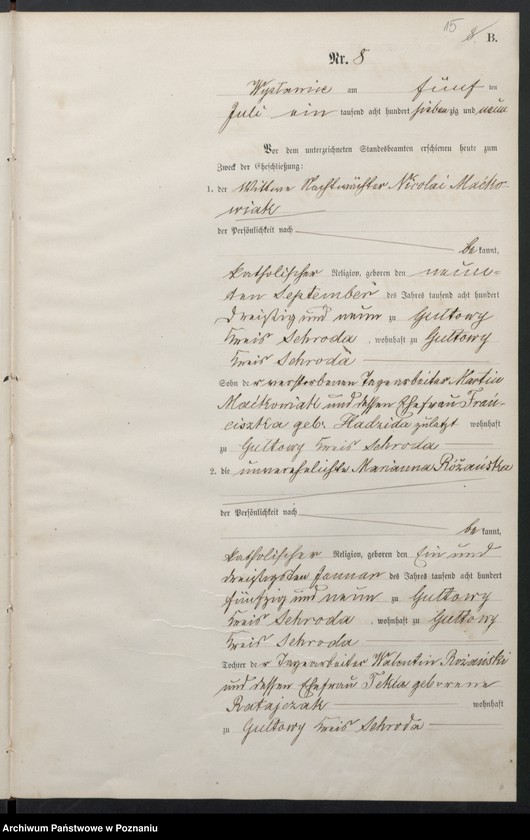 15
8 B.
Nr. 8
Wyslawice am fünf ten
Juli ein tausend acht hundert siebenzig und neun
Vor dem unterzeichneten Standesbeamten erschienen heute zum
Zweck der Eheschließung:
1. der Wittwer Nachtwächter Nicolai Maćko-
wiak
der Persönlichkeit nach
be kannt,
katholischer Religion, geboren den neun-
ten September des Jahres tausend acht hundert
dreißig und neun zu Gultowy
Kreis Schroda, wohnhaft zu Gultowy
Kreis Schroda
Sohn der verstorbenen Tagearbeiter Martin
Maćkowiak und dessen Ehefrau Fran-
ciszka geb. Hadzida zuletzt wohnhaft
zu Gultowy Kreis Schroda
2. die unverehelichte Marianna Różańska
der Persönlichkeit nach
be kannt,
katholischer Religion, geboren den Ein und
dreißigsten Januar des Jahres tausend acht hundert
fünfzig und neun zu Gultowy
Kreis Schroda, wohnhaft zu Gultowy
Kreis Schroda
Tochter der Tagearbeiter Walentin Rożański
und dessen Ehefrau Tekla geborene
Ratajczak wohnhaft
zu Gultowy Kreis Schroda
Archiwum Państwowe w Poznaniu